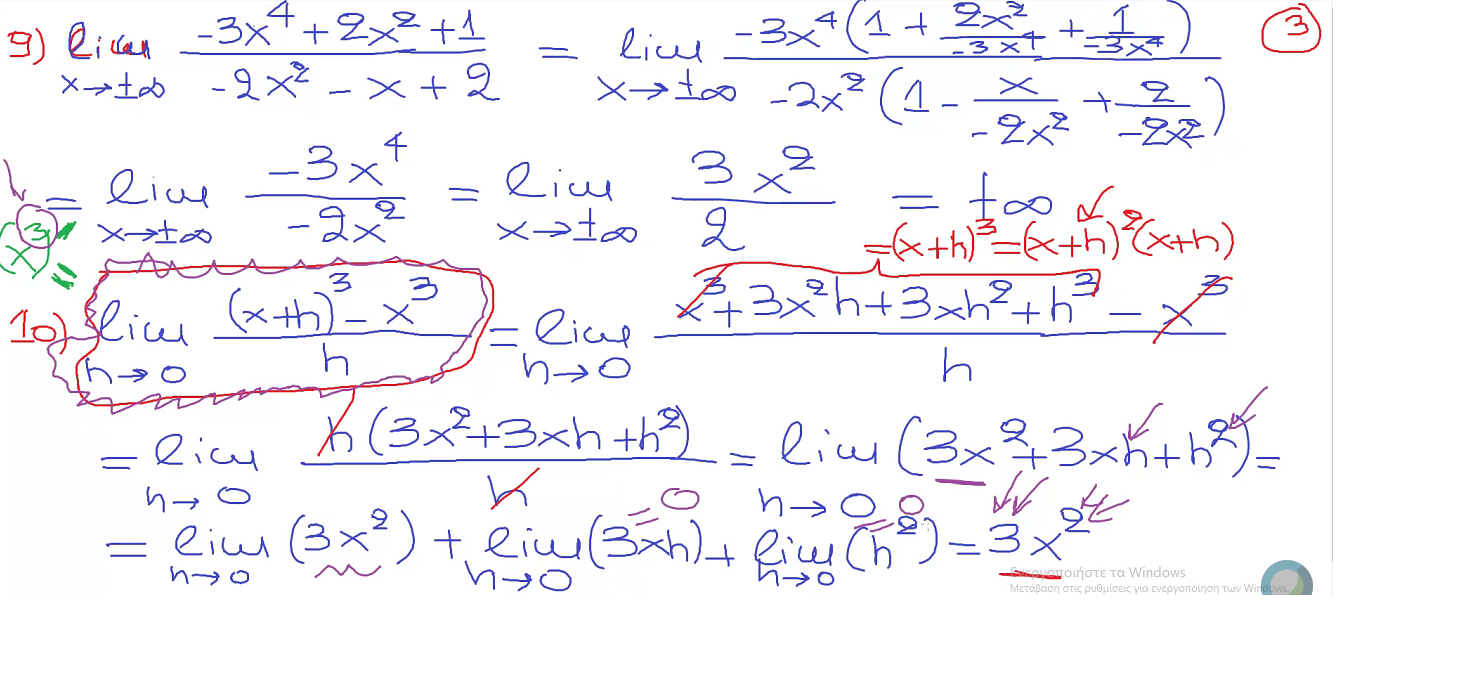 9) lim_{x→±∞} (-3x⁴+2x²+1)/(-2x²-x+2) = lim_{x→±∞} (-3x⁴(1+2x²/(-3x⁴)+1/(-3x⁴)))/(-2x²(1-x/(-2x²)+2/(-2x²))) (3)
= lim_{x→±∞} (-3x⁴)/(-2x²) = lim_{x→±∞} (3x²)/2 = +∞
=(x+h)³=(x+h)²(x+h)
(x³)' =
10) lim_{h→0} ((x+h)³-x³)/h = lim_{h→0} (x³+3x²h+3xh²+h³-x³)/h
= lim_{h→0} (h(3x²+3xh+h²))/h = lim_{h→0} (3x²+3xh+h²) =
=0 0
= lim_{h→0} (3x²) + lim_{h→0} (3xh) + lim_{h→0} (h²) = 3x²
Ενεργοποιήστε τα Windows
Μετάβαση στις ρυθμίσεις για ενεργοποίηση των Windows.